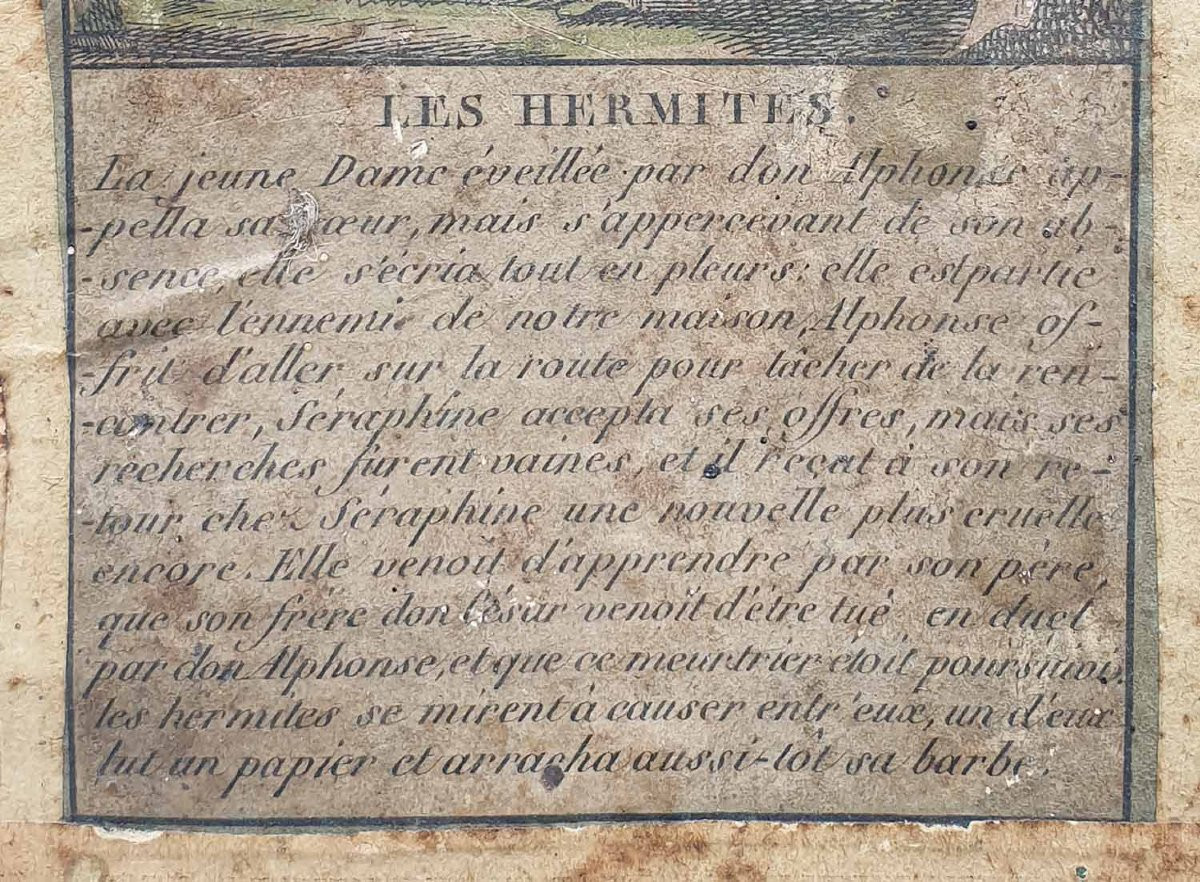 LES HERMITES.
La jeune Dame éveillée par don Alphonse ap-
-pella sa sœur, mais s'appercevant de son ab-
-sence, elle s'écria tout en pleurs: elle est partie
avec l'ennemie de notre maison, Alphonse of-
-frit d'aller sur la route pour tâcher de la ren-
-contrer, Séraphine accepta ses offres, mais ses
recherches furent vaines, et il reçut à son re-
-tour chez Séraphine une nouvelle plus cruelle
encore. Elle venoit d'apprendre par son père,
que son frère don César venoit d'étre tué en duel
par don Alphonse, et que ce meurtrier étoit poursuivis.
les hermites se mirent à causer entr'eux, un d'eux
lut un papier et arracha aussi-tôt sa barbe.